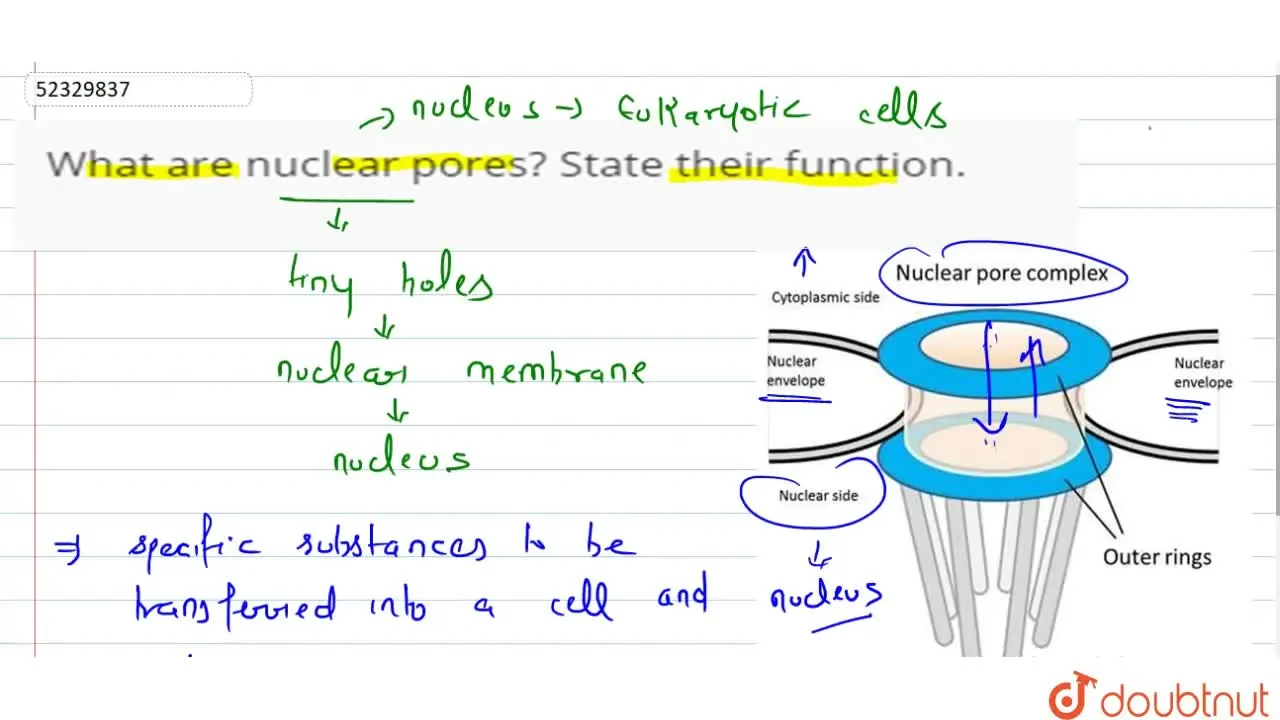 52329837
→ nucleus → Eukaryotic cells
What are nuclear pores? State their function.
↓
tiny holes
↓
nuclear membrane
↓
nucleus
⇒ specific substances to be
transferred into a cell and
↑
Nuclear pore complex
Cytoplasmic side
Nuclear
envelope
Nuclear
envelope
Nuclear side
↓
nucleus
Outer rings
doubtnut